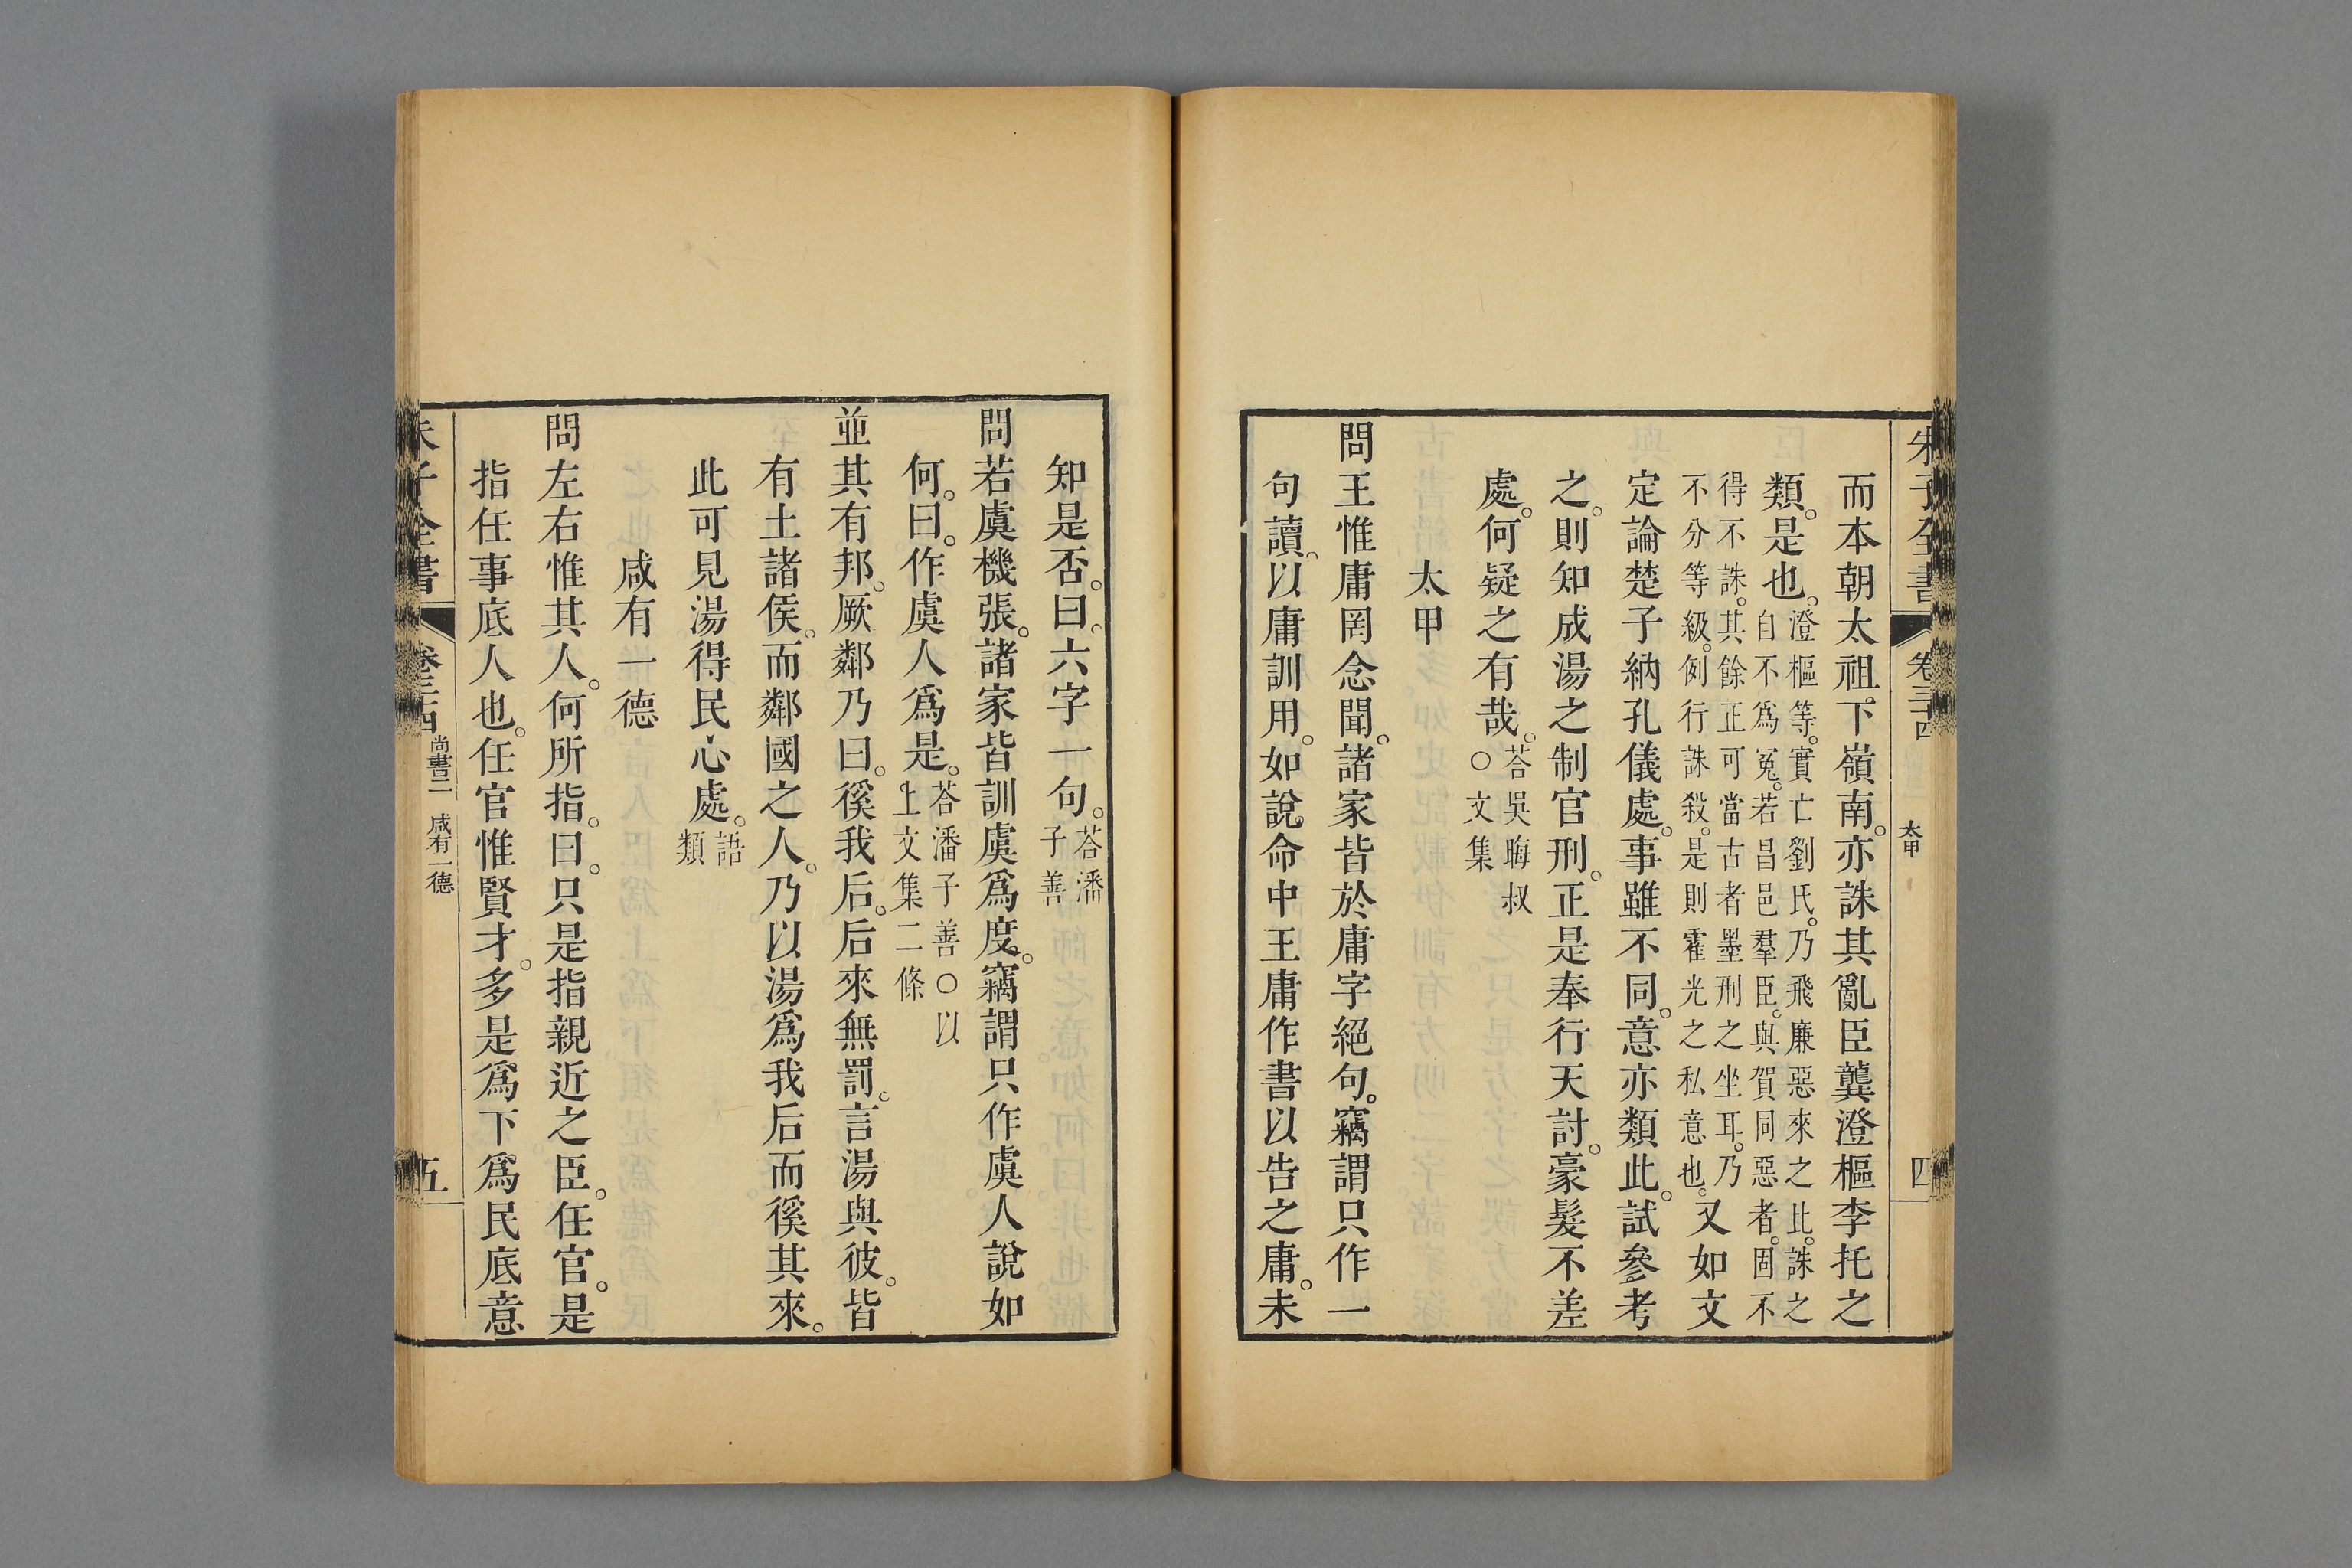 朱子全書 卷三十四 太甲 四
而本朝太祖。下嶺南。亦誅其亂臣龔澄樞李托之
類。是也。澄樞等。實亡劉氏。乃飛廉惡來之比。誅之
自不爲冤。若昌邑羣臣。與賀同惡者。固不
得不誅。其餘正可當古者墨刑之坐耳。乃
不分等級。例行誅殺。是則霍光之私意也。又如文
定論楚子納孔儀處。事雖不同。意亦類此。試參考
之。則知成湯之制官刑。正是奉行天討。豪髮不差
處。何疑之有哉。荅吳晦叔
○文集
太甲
問王惟庸罔念聞。諸家皆於庸字絕句。竊謂只作一
句讀。以庸訓用。如說命中王庸作書以告之庸。未
知是否。曰。六字一句。荅潘
子善
問若虞機張。諸家皆訓虞爲度。竊謂只作虞人說如
何。曰。作虞人爲是。荅潘子善○以
上文集二條
並其有邦。厥鄰乃曰。徯我后。后來無罰。言湯與彼。皆
有土諸侯。而鄰國之人。乃以湯爲我后而徯其來。
此可見湯得民心處。語
類
咸有一德
問左右惟其人。何所指。曰。只是指親近之臣。任官。是
指任事底人也。任官惟賢才。多是爲下爲民底意
朱子全書 卷三十四 尚書二 咸有一德 五